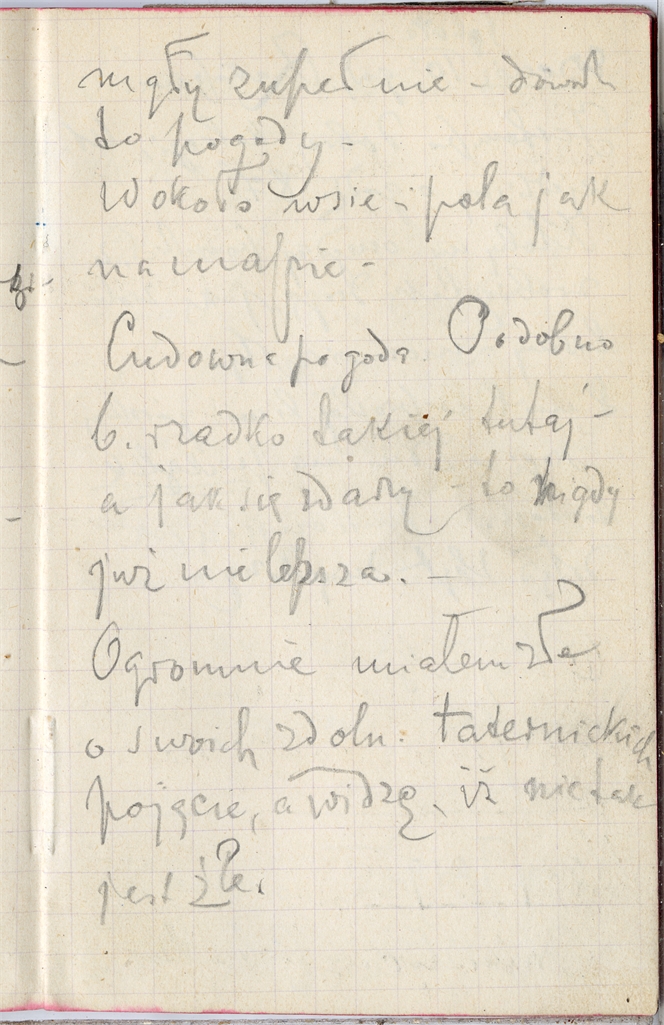 mgły zupełnie – dowód
to pogody –
Wokoło wsie – pola jak
na mapie –
Cudowna pogoda. Podobno
b. rzadko takiej tutaj –
a jak się zdarzy – to nigdy
już nie lepsza. –
Ogromnie miałem złe
o swoich zdoln. taternickich
pojęcie, a widzę, iż nie tak
jest źle.